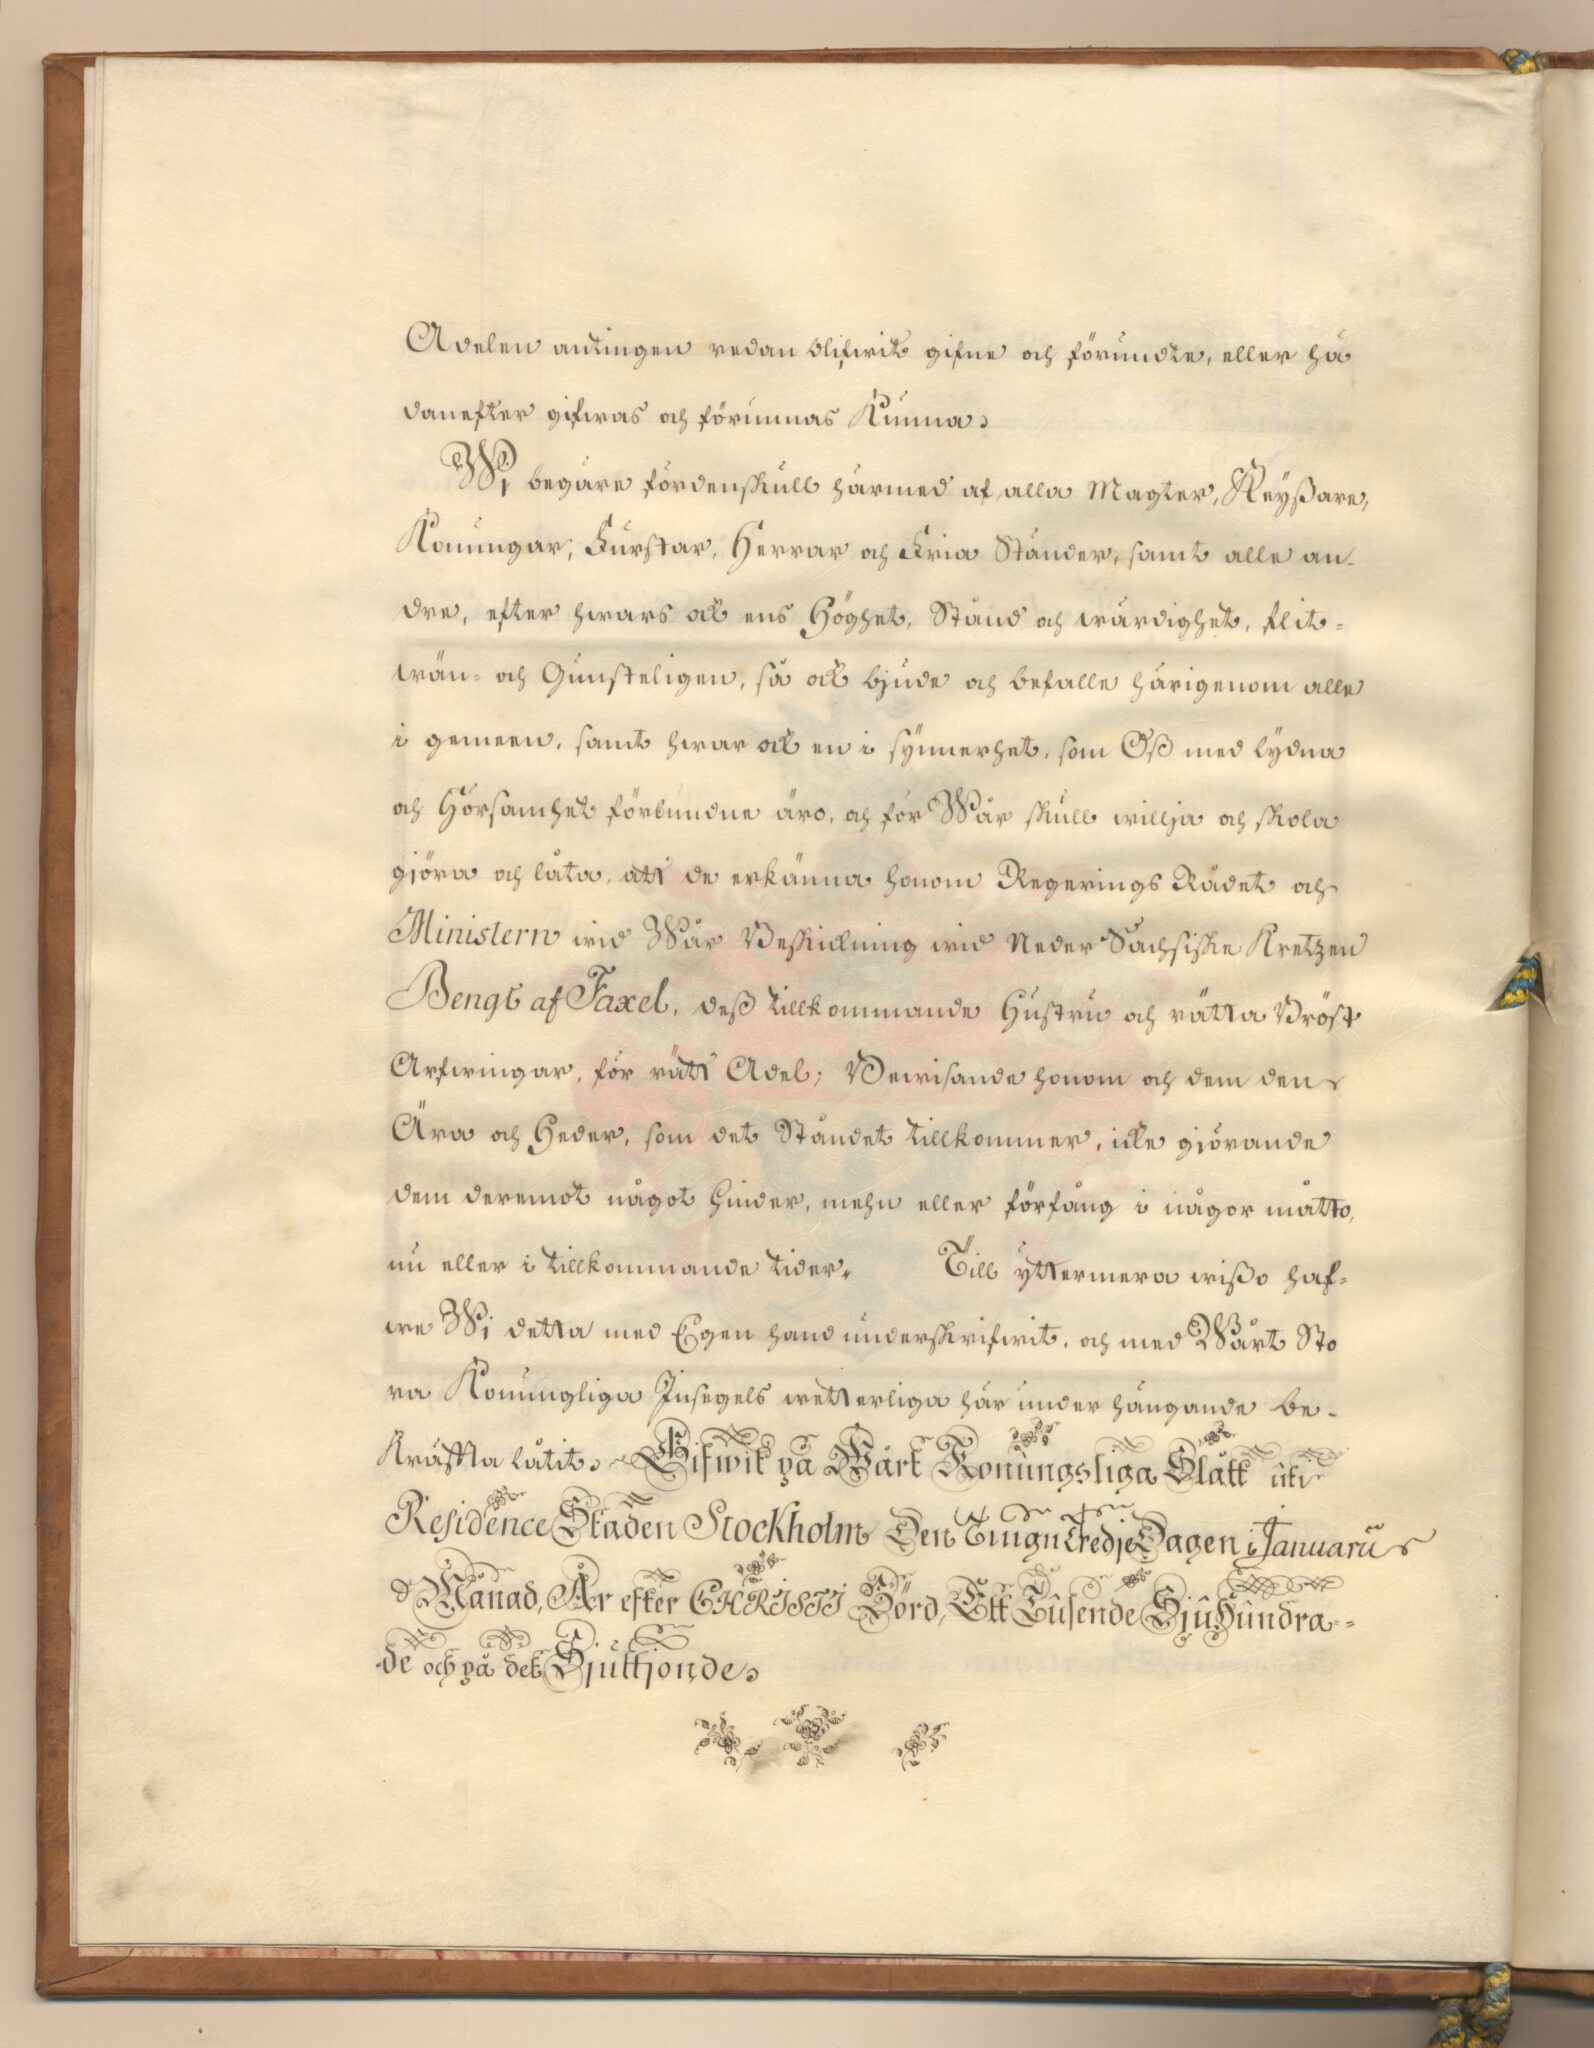 Adelen antingen redan blifwit gifne och förundte, eller hä
danefter gifwas och förunnas Kunna.
Wi begäre fördenskull härmed af alla Magter, Keyßare,
Konungar, Furstar, Herrar och Fria Ständer, samt alle an-
dre, efter hwars ock ens Höghet, Stånd och wärdighet, flit=
wän= och Gunsteligen, så ock biude och befalle härigenom alle
i gemeen, samt hwar ock en i synnerhet, som Oß med lydna
och Hörsamhet förbundne äro, och för Wår skull willja och skola
giöra och låta, att de erkänna honom Regerings Rådet och
Ministern wid Wår Beskickning wid Neder Sachsiske Kretzen
Bengt af Faxel, deß tillkommande Hustru och rätta Bröst
Arfwingar, för rätt Adel; Bewisande honom och dem den
Ära och Heder, som det Ståndet tillkommer, icke giörande
dem deremot något hinder, mehn eller förfång i någor måtto,
nu eller i tillkommande tider. Till yttermera wißo haf=
we Wi detta med Egen hand underskrifwit, och med Wårt Sto
ra Konungliga Insegels wetterliga här under hängande be-
Kräffta låtit. Gifwit på Wårt Konungsliga Slått uti
Residence Staden Stockholm Den Tiugu tredje Dagen i Januarii
Månad, År efter CHRISTI Börd, Ett Tusende Sju Hundra--
de och på det Sjuttjonde.